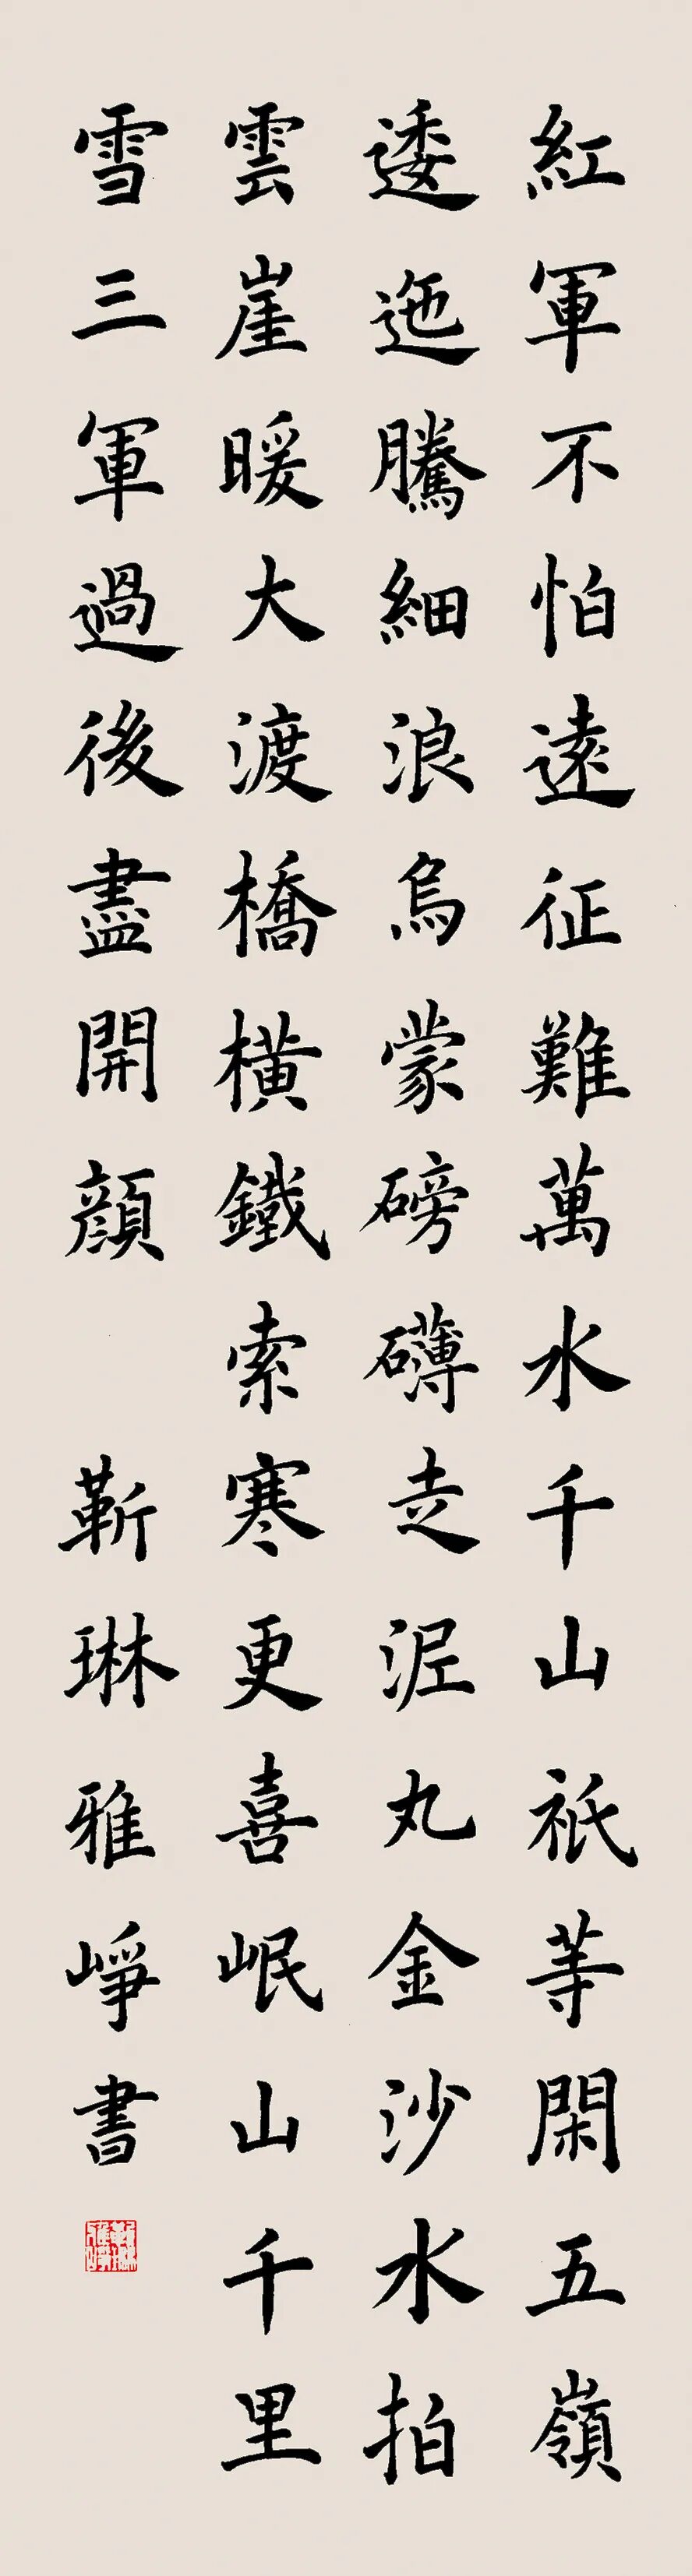 紅軍不怕遠征難萬水千山祇等閑五嶺
逶迤騰細浪烏蒙磅礴走泥丸金沙水拍
雲崖暖大渡橋橫鐵索寒更喜岷山千里
雪三軍過後盡開顏 靳琳雅崢書